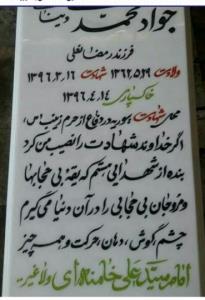 جواد محمدی
دینانی
فرزند رمضانعلی
ولادت ۱۳۶۲,۵,۲۹ شهادت ۱۳۹۶,۳,۱۶
خاکسپاری ۱۳۹۶,۴,۱۴
محل شهادت سوریه در دفاع از حرم زینب س
اگر خداوند شهادت را نصیب من کرد
بنده از شهدایی هستم که یقهٔ بی حجابها
و مروجان بی حجابی را در آن دنیا می گیرم
چشم، گوش، دهان، حرکت و همه چیز
آقام سید علی خامنه ای ولاغیر